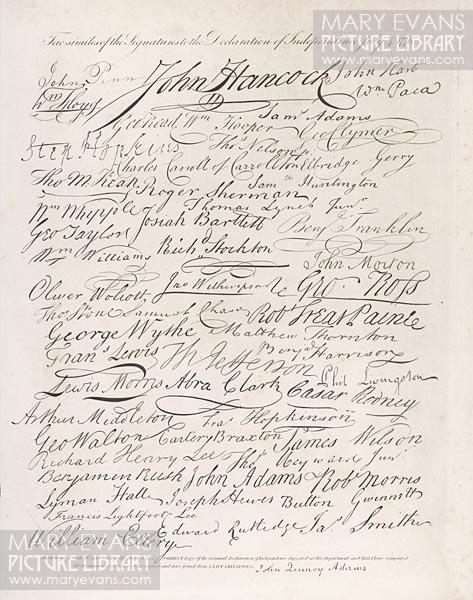 MARY EVANS
PICTURE LIBRARY
Fac similes of the Signatures to the Declaration of Independence July 4
John Penn John Hancock John Hart
Wm Floyd Wm Paca
Geo Read Wm Hooper Saml Adams Geo Clymer
Step Hopkins Thos Nelson jr
Charles Carroll of Carrollton Elbridge Gerry
Tho M: Kean Roger Sherman Saml Huntington
Wm Whipple Thomas Lynch Junr
Josiah Bartlett Benj Franklin
Geo Taylor
Wm Williams Richd Stockton John Morton
Oliver Wolcott Jno Witherspoon Geo. Ross
Thos Stone Samuel Chase Robt Treat Paine
George Wythe Matthew Thornton
Frans Lewis Th Jefferson Benj Harrison
Lewis Morris Abra Clark Phil Livingston
Casar Rodney
Arthur Middleton Fras Hopkinson
Geo Walton Carter Braxton James Wilson
Richard Henry Lee Thos Heyward Junr
Benjamin Rush John Adams Robt Morris
Lyman Hall Joseph Hewes Button Gwinnett
Francis Lightfoot Lee
William Ellery Edward Rutledge Jas Smith
CORRECT Copy of the original Declaration of Independence deposited at this Department and that I have compared
and have found them EXACT IMITATIONS.
John Quincy Adams
MARY EVANS
PICTURE LIBRARY
www.maryevans.com